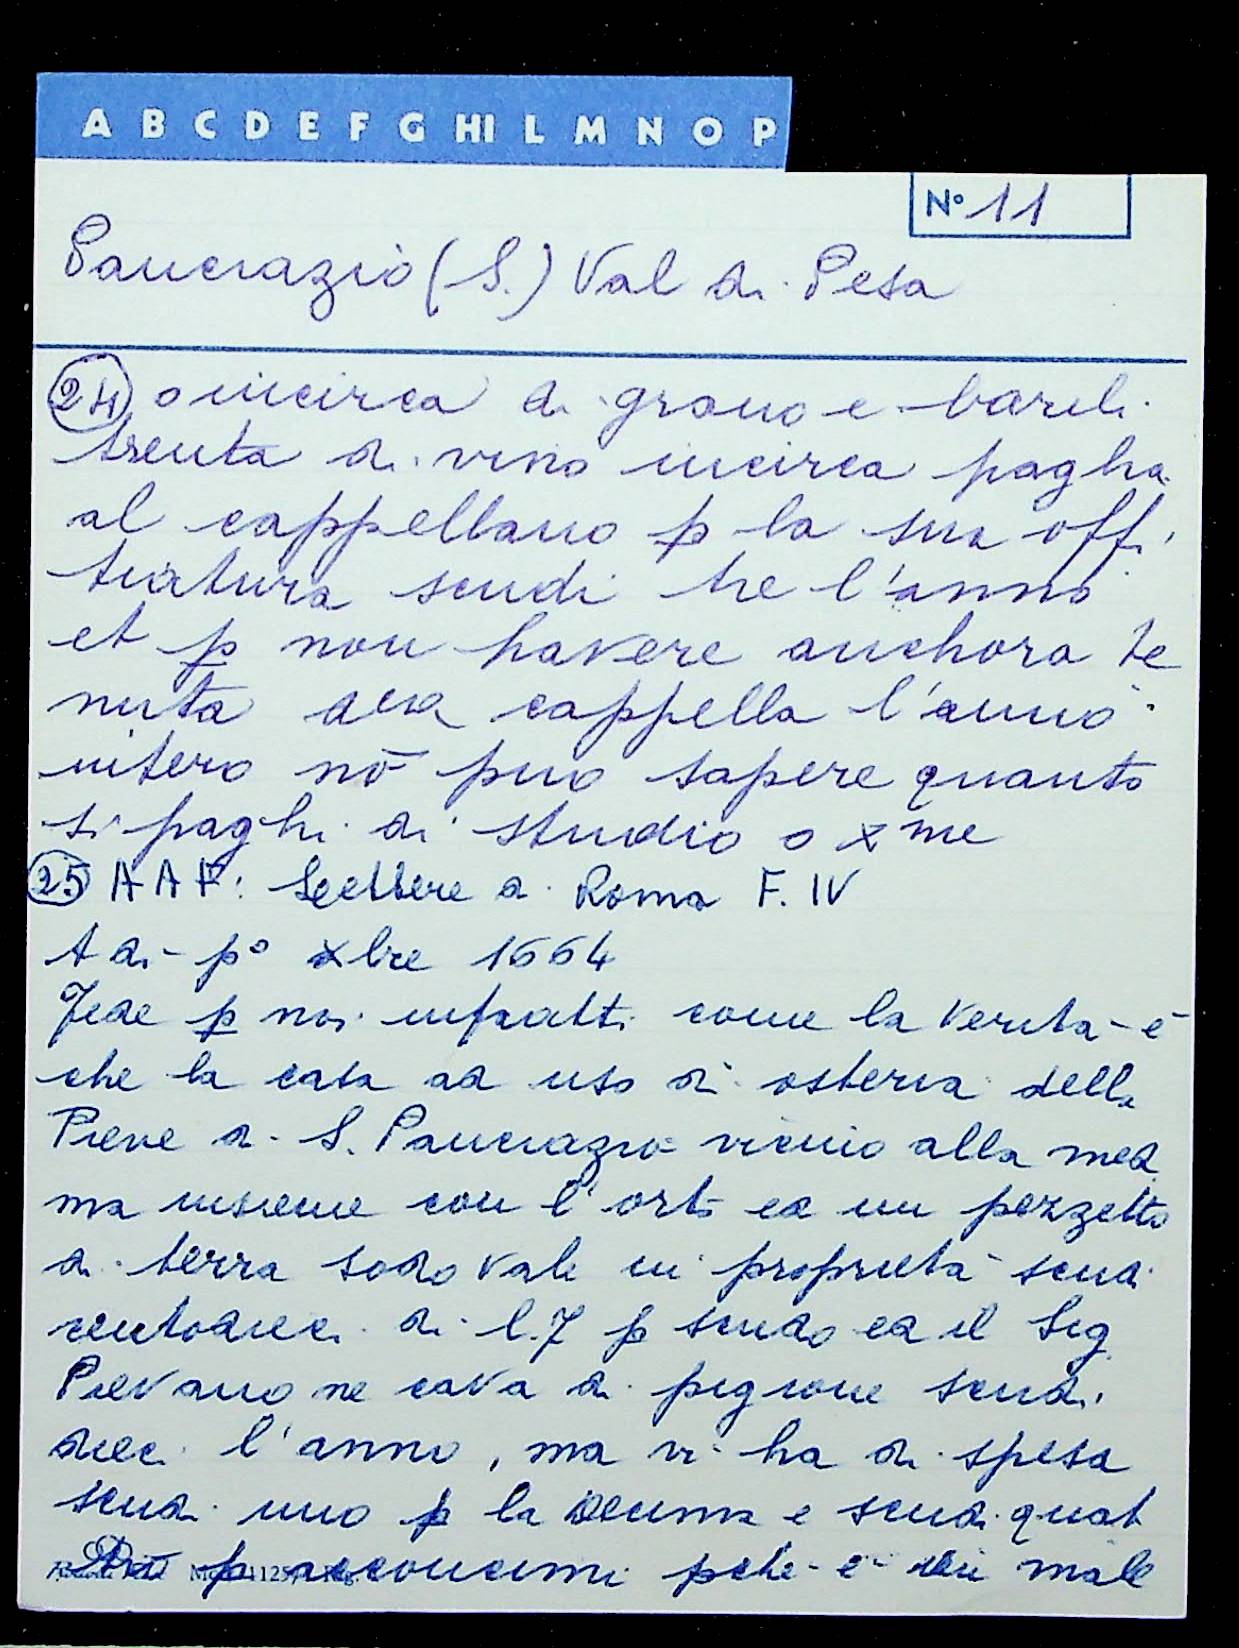 A B C D E F G HI L M N O P
N° 11
Pancrazio (S.) Val di Pesa
24 o incirca di grano e barili
trenta di vino incirca pagha
al cappellano p la sua offi
tiatura scudi tre l'anno
et p non havere anchora te
nuta cappella l'anno
intero nō puo sapere quanto
si paghi di studio o xme
25 AAF: Lettere a Roma F. IV
A di p° xbre 1664
Fede p noi infratti come la verità è
che la casa ad uso di osteria della
Pieve di S. Pancrazio vicino alla med
ma insieme con l'orto ed un pezzetto
di terra sodo vale in proprietà scudi
centodieci di l. 7 p scudo ed il Sig
Pievano ne cava di pigione scudi
dieci l'anno, ma vi ha di spesa
scudi uno p la decima e scudi quat
tro p acconcimi pchè è in male